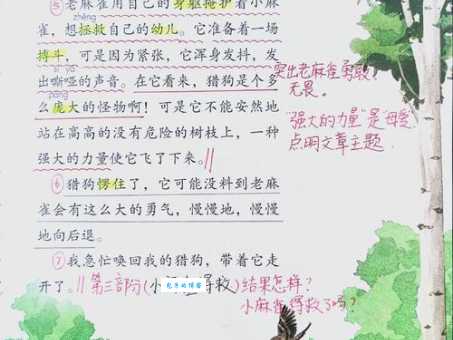 ⑤老麻雀用自己的身躯掩护着小麻
zhěng
雀，想拯救自己的幼儿。它准备着一场
搏斗，可是因为紧张，它浑身发抖，发
出嘶哑的声音。在它看来，猎狗是个多
páng
么庞大的怪物啊！可是它不能安然地
站在高高的没有危险的树枝上，一种
强大的力量使它飞了下来。
突出老麻雀勇敢
无畏。
"强大的力量"是"母爱"
点明文章主题
⑥猎狗愣住了，它可能没料到老麻
雀会有这么大的勇气，慢慢地，慢慢
地向后退。
⑦我急忙唤回我的猎狗，带着它走
开了。
第三部分(小 得救)结果怎样？
小麻雀得救了吗？